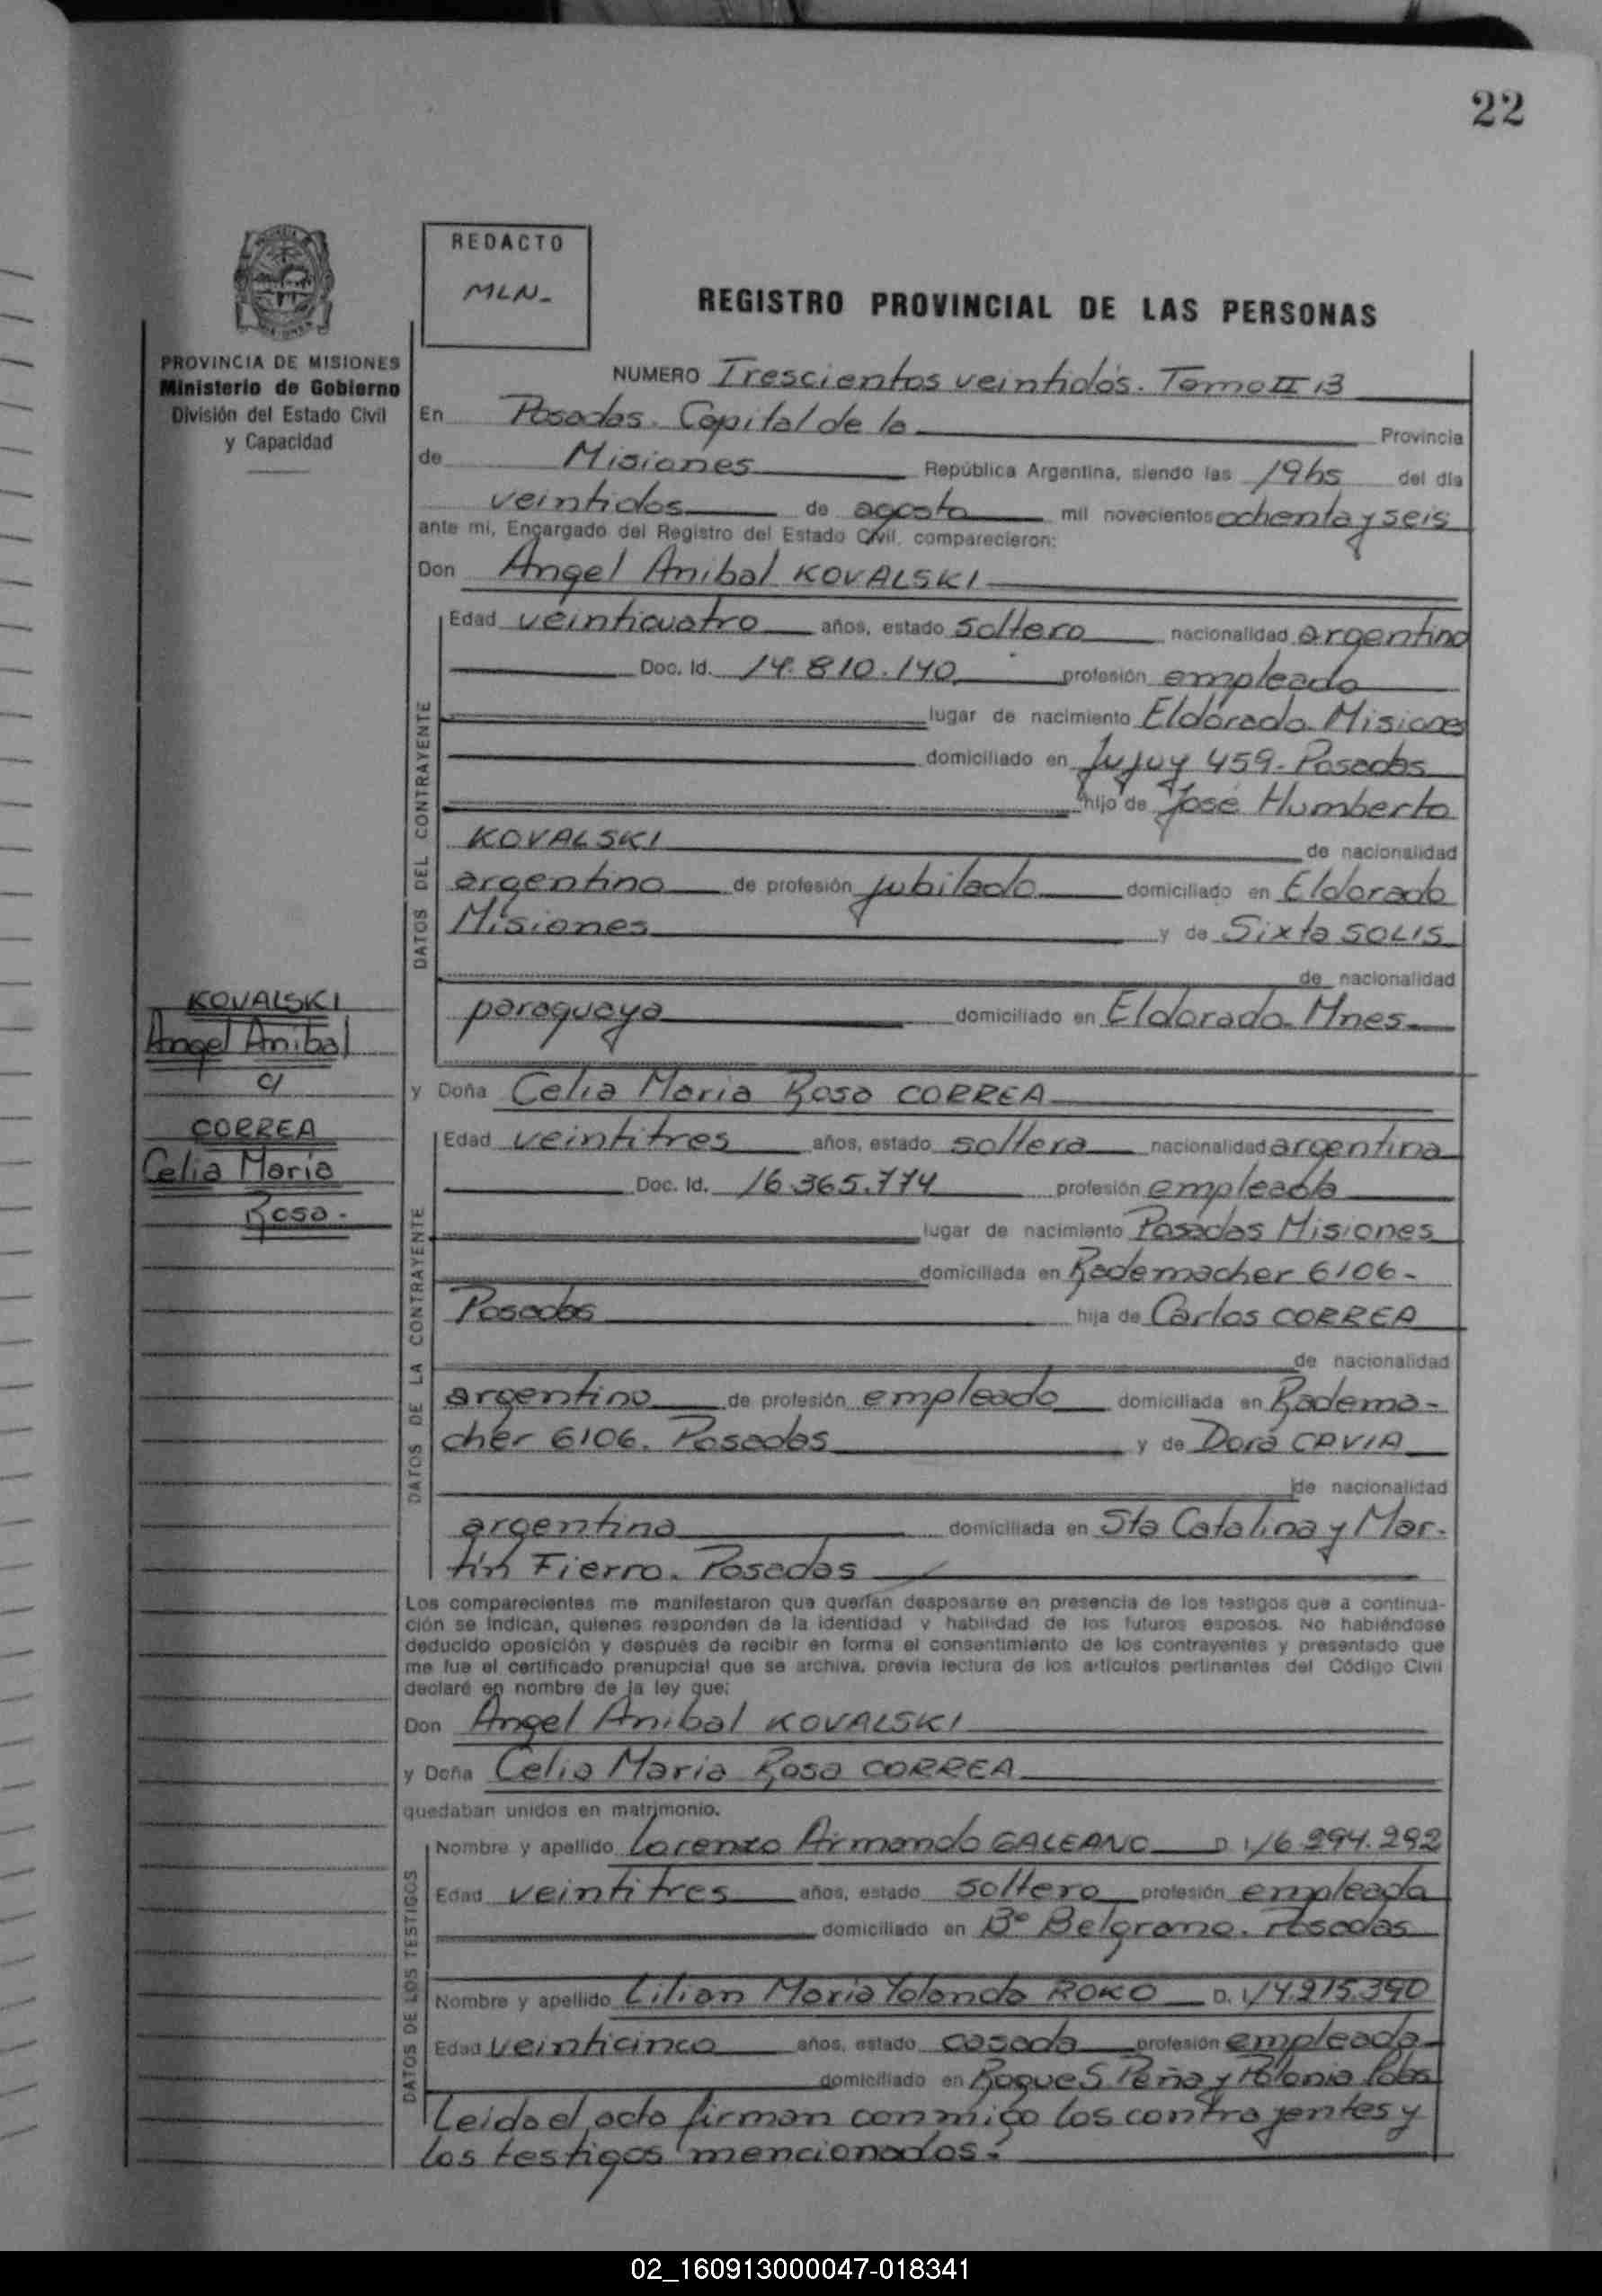 22
REDACTO
MLN-
REGISTRO PROVINCIAL DE LAS PERSONAS
PROVINCIA DE MISIONES
Ministerio de Gobierno
División del Estado Civil
y Capacidad
NUMERO Trescientos veintidós. Tomo II 13
En Posadas. Capital de la Provincia
de Misiones República Argentina, siendo las 19hs del día
veintidos de agosto mil novecientos ochenta y seis
ante mí, Encargado del Registro del Estado Civil, comparecieron:
Don Angel Anibal KOVALSKI
DATOS DEL CONTRAYENTE
Edad veinticuatro años, estado soltero nacionalidad argentino
Doc. Id. 14.810.140 profesión empleado
lugar de nacimiento Eldorado Misiones
domiciliado en Jujuy 459- Posadas
hijo de José Humberto
KOVALSKI de nacionalidad
argentino de profesión jubilado domiciliado en Eldorado
Misiones y de Sixta SOLIS
de nacionalidad
paraguaya domiciliado en Eldorado Mnes
KOVALSKI
Angel Anibal
c/
CORREA
Celia Maria
Rosa-
y Doña Celia Maria Rosa CORREA
DATOS DE LA CONTRAYENTE
Edad veintitres años, estado soltera nacionalidad argentina
Doc. Id. 16.365.774 profesión empleada
lugar de nacimiento Posadas Misiones
domiciliada en Rademacher 6106-
Posadas hija de Carlos CORREA
de nacionalidad
argentino de profesión empleado domiciliada en Radema-
cher 6106. Posadas y de Dora CAVIA
de nacionalidad
argentina domiciliada en Sta Catalina y Mar-
tín Fierro. Posadas
Los comparecientes me manifestaron que querían desposarse en presencia de los testigos que a continua-
ción se indican, quienes responden de la identidad y habilidad de los futuros esposos. No habiéndose
deducido oposición y después de recibir en forma el consentimiento de los contrayentes y presentado que
me fue el certificado prenupcial que se archiva, previa lectura de los artículos pertinentes del Código Civil
declaré en nombre de la ley que:
Don Angel Anibal KOVALSKI
y Doña Celia Maria Rosa CORREA
quedaban unidos en matrimonio.
DATOS DE LOS TESTIGOS
Nombre y apellido Lorenzo Armando GALEANO D.I. 16.294.292
Edad veintitres años, estado soltero profesión empleada
domiciliado en B° Belgrano. Posadas
Nombre y apellido Lilian Maria Yolanda ROKO D. I. 14.215.390
Edad veinticinco años, estado casada profesión empleada
domiciliado en Roque S Peña y Polonia Pdas
Leida el acta firman conmigo los contrayentes y
los testigos mencionados.-
02_160913000047-018341